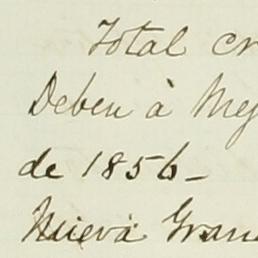 Total cr
Deben à Mej
de 1856_
Nueva Gran